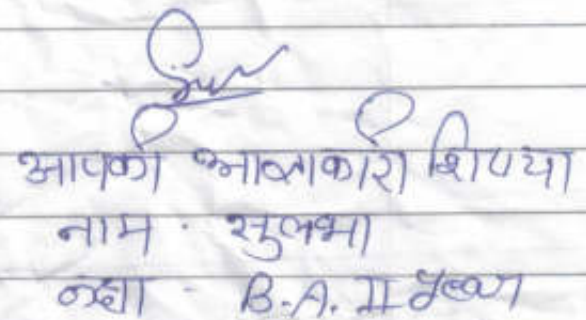 आपकी आज्ञाकारी शिष्या
नाम - सुलभा
कक्षा - B.A. II